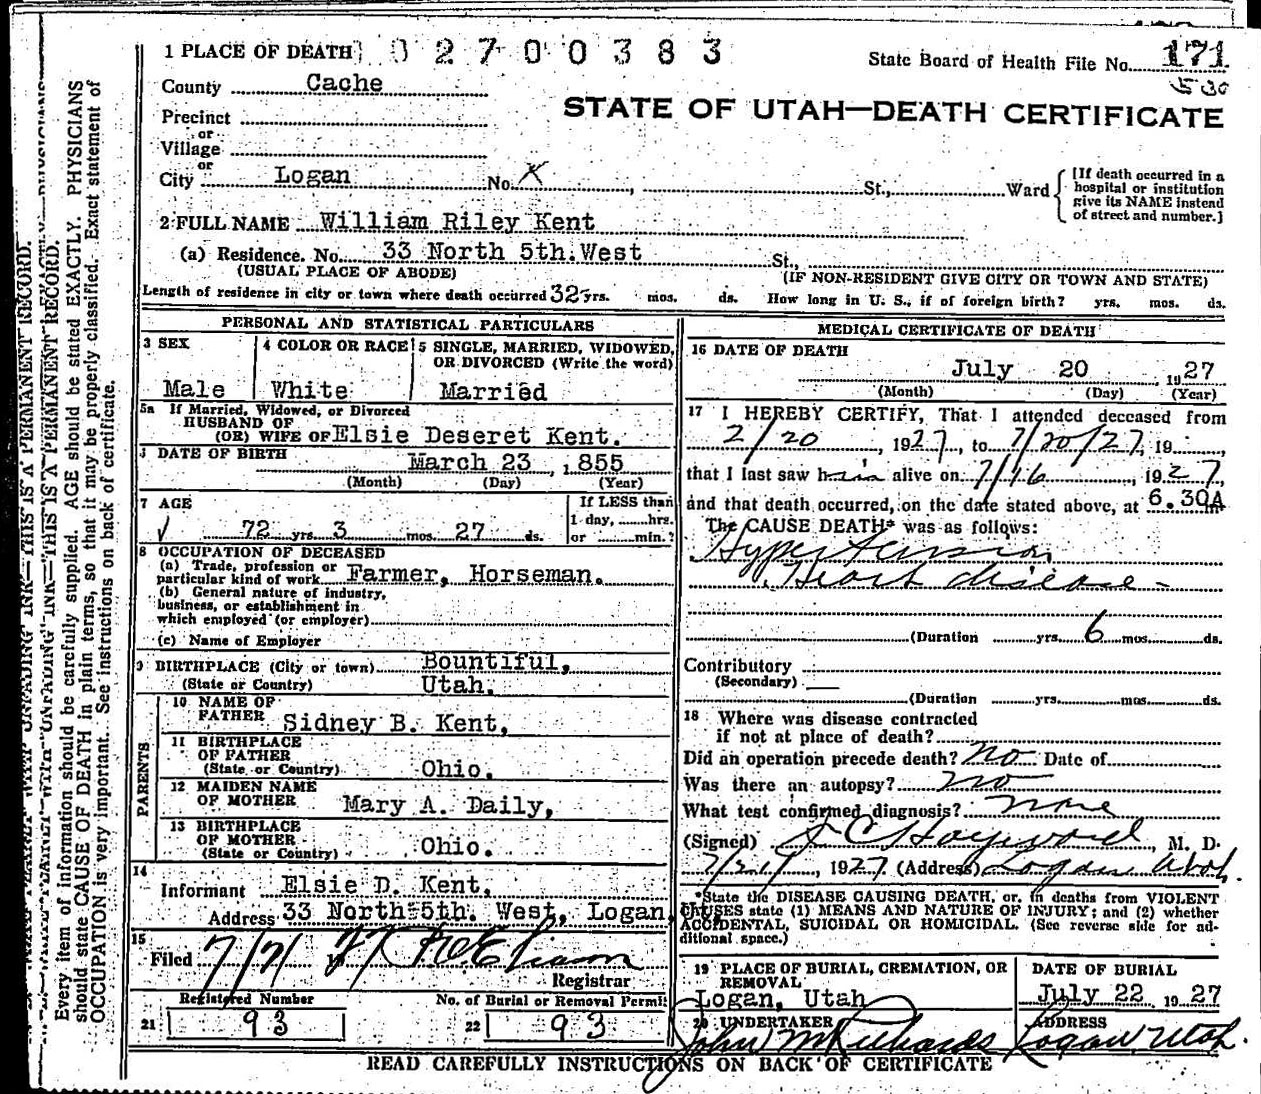 1 PLACE OF DEATH 02700383
State Board of Health File No. 171
530
County Cache
STATE OF UTAH—DEATH CERTIFICATE
Precinct
or
Village
or
City Logan No. X, St., Ward
[If death occurred in a hospital or institution give its NAME instead of street and number.]
2 FULL NAME William Riley Kent
(a) Residence. No. 33 North 5th.West St.,
(USUAL PLACE OF ABODE) (IF NON-RESIDENT GIVE CITY OR TOWN AND STATE)
Length of residence in city or town where death occurred 32 yrs. mos. ds. How long in U. S., if of foreign birth? yrs. mos. ds.
PERSONAL AND STATISTICAL PARTICULARS
3 SEX Male
4 COLOR OR RACE White
5 SINGLE, MARRIED, WIDOWED, OR DIVORCED (Write the word) Married
5a If Married, Widowed, or Divorced
HUSBAND OF
(OR) WIFE OF Elsie Deseret Kent.
DATE OF BIRTH March 23, 1855
(Month) (Day) (Year)
7 AGE
72 yrs. 3 mos. 27 ds.
If LESS than
1 day, hrs.
or min.?
8 OCCUPATION OF DECEASED
(a) Trade, profession or
particular kind of work Farmer, Horseman.
(b) General nature of industry,
business, or establishment in
which employed (or employer)
(c) Name of Employer
9 BIRTHPLACE (City or town) Bountiful,
(State or Country) Utah.
PARENTS
10 NAME OF
FATHER Sidney B. Kent,
11 BIRTHPLACE
OF FATHER
(State or Country) Ohio.
12 MAIDEN NAME
OF MOTHER Mary A. Daily,
13 BIRTHPLACE
OF MOTHER
(State or Country) Ohio.
14
Informant Elsie D. Kent,
Address 33 North 5th. West, Logan,
15
Filed 7/21 27
Registrar
Registered Number
21 93
No. of Burial or Removal Permit
22 93
MEDICAL CERTIFICATE OF DEATH
16 DATE OF DEATH
July 20, 1927
(Month) (Day) (Year)
17 I HEREBY CERTIFY, That I attended deceased from
2/20, 1927, to 7/20/27, 19
that I last saw him alive on 7/16, 1927,
and that death occurred, on the date stated above, at 6.30A m
The CAUSE DEATH* was as follows:
Hypertension
Heart disease-
(Duration yrs. 6 mos. ds.
Contributory
(Secondary)
(Duration yrs. mos. ds.
18 Where was disease contracted
if not at place of death?
Did an operation precede death? no Date of
Was there an autopsy? no
What test confirmed diagnosis? none
(Signed) J C Hayward, M. D.
7/21, 1927 (Address) Logan Utah.
*State the DISEASE CAUSING DEATH, or, in deaths from VIOLENT
CAUSES state (1) MEANS AND NATURE OF INJURY; and (2) whether
ACCIDENTAL, SUICIDAL OR HOMICIDAL. (See reverse side for ad-
ditional space.)
19 PLACE OF BURIAL, CREMATION, OR
REMOVAL
Logan, Utah
DATE OF BURIAL
July 22 1927
20 UNDERTAKER
John M Richards
ADDRESS
Logan Utah.
READ CAREFULLY INSTRUCTIONS ON BACK OF CERTIFICATE
THIS IS A PERMANENT RECORD.
Every item of information should be carefully supplied. AGE should be stated EXACTLY. PHYSICIANS
should state CAUSE OF DEATH in plain terms, so that it may be properly classified. Exact statement of
OCCUPATION is very important. See instructions on back of certificate.